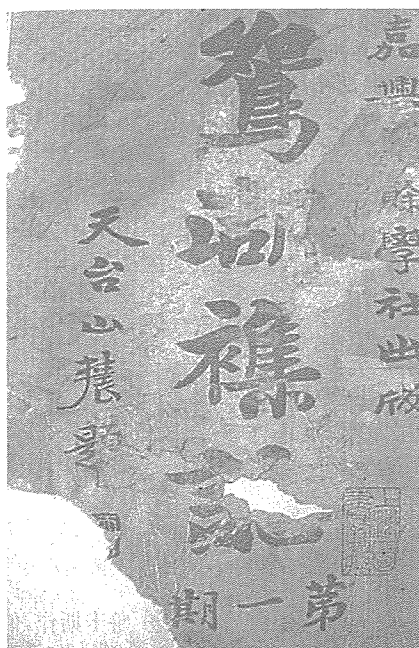 嘉興餘學社出版
鴛湖襍誌
天台山農題
第一期